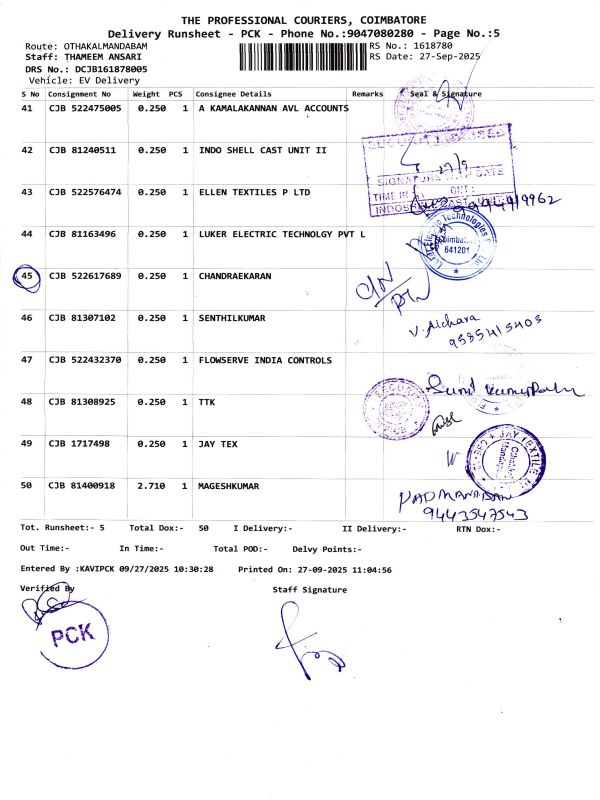 THE PROFESSIONAL COURIERS, COIMBATORE
Delivery Runsheet - PCK - Phone No.:9047080280 - Page No.:5
Route: OTHAKALMANDABAM RS No.: 1618780
Staff: THAMEEM ANSARI RS Date: 27-Sep-2025
DRS No.: DCJB161878005
Vehicle: EV Delivery
S No Consignment No Weight PCS Consignee Details Remarks Seal & Signature
41 CJB 522475005 0.250 1 A KAMALAKANNAN AVL ACCOUNTS
42 CJB 81240511 0.250 1 INDO SHELL CAST UNIT II
27/9
SIGNATURE DATE
TIME IN OUT:
43 CJB 522576474 0.250 1 ELLEN TEXTILES P LTD
44 CJB 81163496 0.250 1 LUKER ELECTRIC TECHNOLGY PVT L
Coimbatore
641201
45 CJB 522617689 0.250 1 CHANDRAEKARAN
46 CJB 81307102 0.250 1 SENTHILKUMAR
9585415403
47 CJB 522432370 0.250 1 FLOWSERVE INDIA CONTROLS
48 CJB 81308925 0.250 1 TTK
SECURITY
49 CJB 1717498 0.250 1 JAY TEX
50 CJB 81400918 2.710 1 MAGESHKUMAR
PADMANABAN
9443547543
Tot. Runsheet:- 5 Total Dox:- 50 I Delivery:- II Delivery:- RTN Dox:-
Out Time:- In Time:- Total POD:- Delvy Points:-
Entered By :KAVIPCK 09/27/2025 10:30:28 Printed On: 27-09-2025 11:04:56
Verified By Staff Signature
PCK